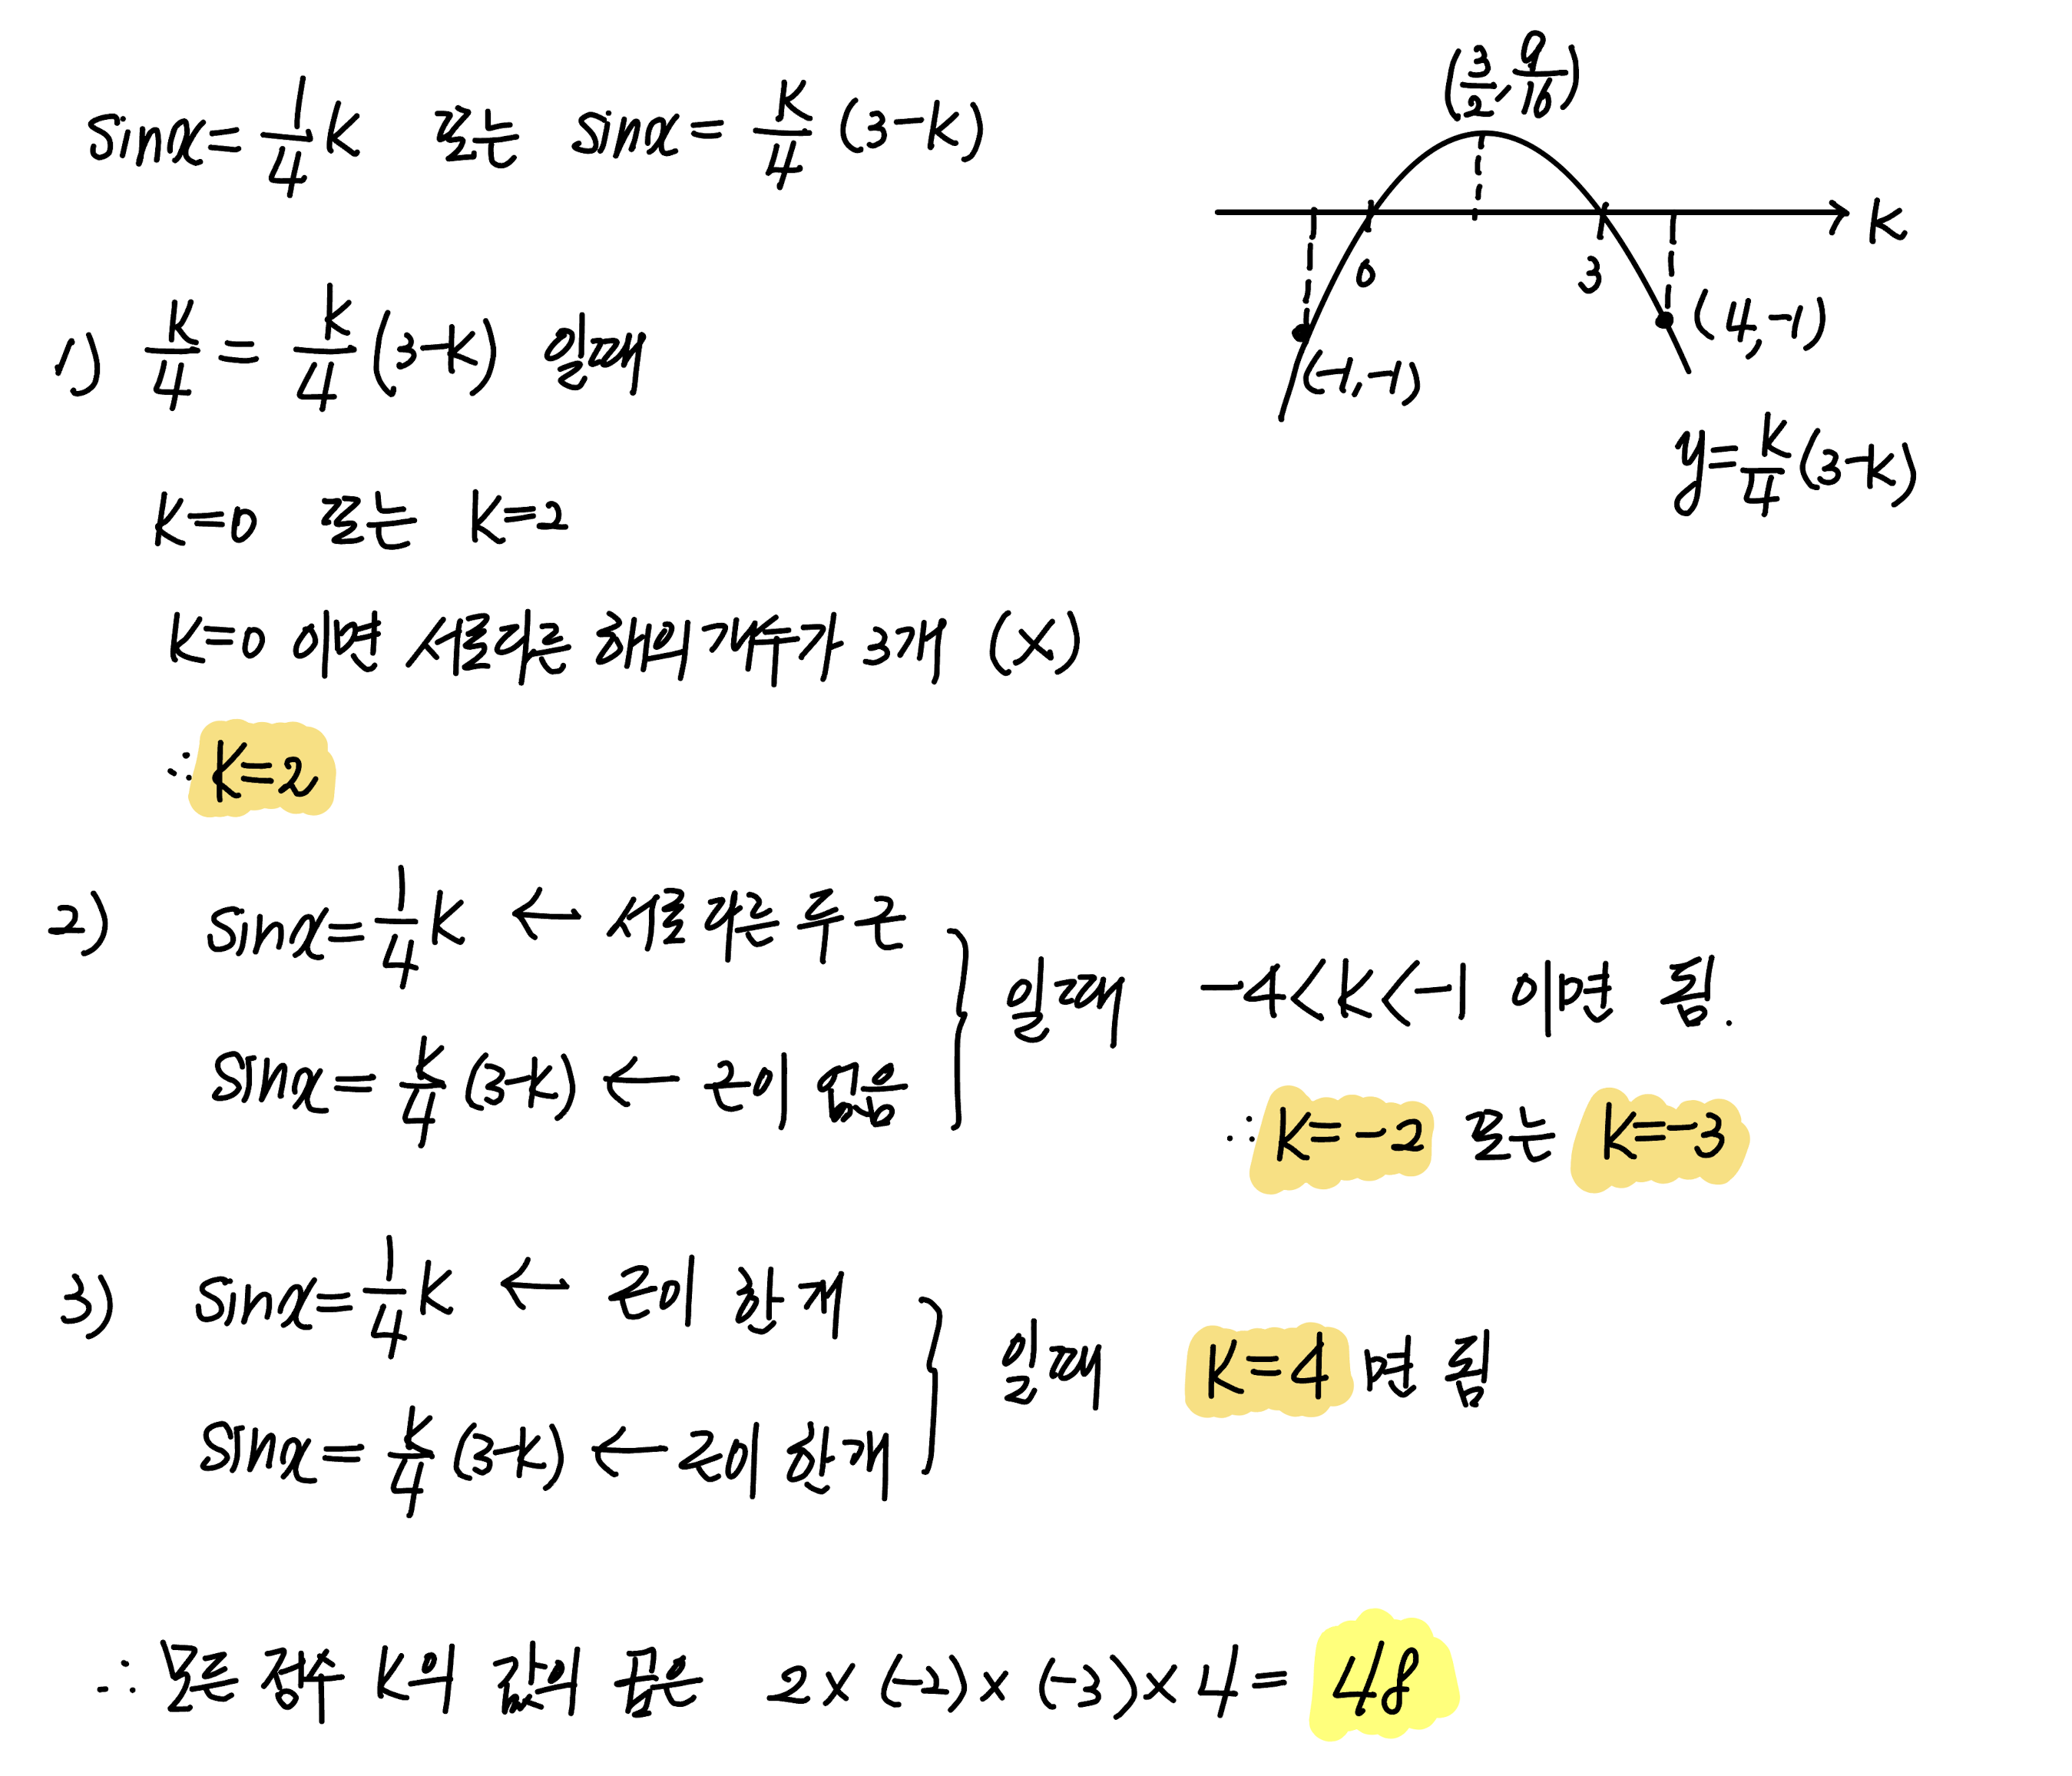 sinx = 1/4 k 또는 sinx = k/4 (3-k)
(3/2, 9/16)
k
0
3
(-1, -1)
(4, -1)
y = k/4 (3-k)
1) k/4 = k/4 (3-k) 일 때
k=0 또는 k=2
k=0 이면 서로 다른 해의 개수가 3개 (x)
∴ k=2
2) sinx = 1/4 k ← 서로 다른 두 근
sinx = k/4 (3-k) ← 근이 없음
일 때 -4<k<-1 이면 됨.
∴ k=-2 또는 k=-3
3) sinx = 1/4 k ← 근이 한 개
sinx = k/4 (3-k) ← 근이 한 개
일 때 k=4 면 됨
∴ 모든 정수 k의 값의 곱은 2 x (-2) x (-3) x 4 = 48